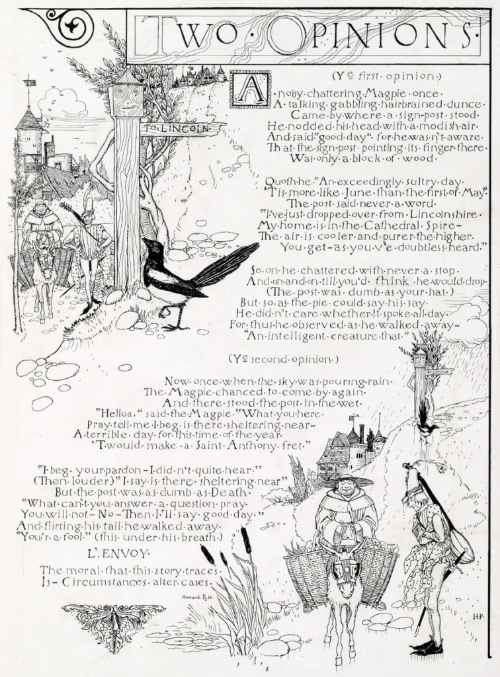 TWO · OPINIONS ·
TO · LINCOLN ·
(Yᵉ first · opinion ·)
A · noisy · chattering · Magpie · once ·
A · talking · gabbling · hairbrained · dunce ·
Came · by · where · a · sign-post · stood ·
He · nodded · his · head · with · a · modish · air ·
And · said "good · day" · for · he · wasn't · aware ·
That · the · sign-post · pointing · its · finger · there ·
Was · only · a · block · of · wood ·
Quoth · he · "An · exceedingly · sultry · day ·
'Tis · more · like · June · than · the · first · of · May."
The · post · said · never · a · word ·
"I've · just · dropped · over · from · Lincolnshire ·
My · home · is · in · the · Cathedral · Spire –
The · air · is · cooler · and · purer · the · higher ·
You · get – as · you 'v'e · doubtless · heard."
So · on · he · chattered · with · never · a · stop ·
And · on · and · on · till · you'd · think · he · would · drop ·
(The · post · was · dumb · as · your · hat ·)
But · so · as · the · pie · could · say · his · say ·
He · did n't · care · whether · it · spoke · all · day ·
For · thus · he · observed · as · he · walked · away –
"An · intelligent · creature · that."
(Yᵉ second · opinion ·)
Now · once · when · the · sky · was · pouring · rain ·
The · Magpie · chanced · to · come · by · again ·
And · there · stood · the · post · in · the · wet ·
"Helloa ·" said · the · Magpie · "What · you · here ·
Pray · tell · me · I · beg · is · there · sheltering · near –
A · terrible · day · for · this · time · of · the · year ·
'Twould · make · a · Saint · Anthony · fret ·"
"I · beg · your · pardon – I · did · n't · quite · hear ·"
(Then · louder) "I · say · is · there · sheltering · near"
But · the · post · was · as · dumb · as · Death ·
"What · can't · you · answer · a · question · pray ·
You · will · not – No – Then · I · 'll · say · good · day ·"
And · flirting · his · tail · he · walked · away ·
"You'r · a · fool ·" (this · under · his · breath ·)
L'. ENVOY ·
The · moral · that · this · story · traces ·
Is – Circumstances · alter · cases ·
Howard Pyle ·
H · P ·